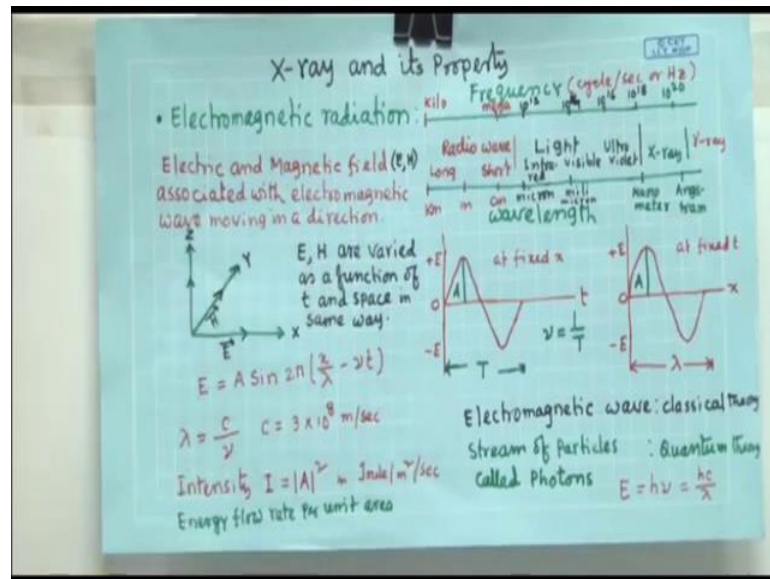 X-ray and its Property
• Electromagnetic radiation:
Frequency (cycle/sec or Hz)
kilo mega 10^12 10^14 10^16 10^18 10^20
Radio wave Light X-ray γ-ray
Long Short Infra-red visible Ultra violet
Km m cm micron mili micron Nano meter Angstram
wavelength
Electric and Magnetic field (E, H)
associated with electromagnetic
wave moving in a direction.
Z Y X
H E
E, H are varied
as a function of
t and space in
same way.
+E at fixed x
A
0 t
-E
T
ν = 1/T
+E at fixed t
A
0 x
-E
λ
E = A sin 2π (x/λ - νt)
λ = c/ν C = 3×10^8 m/sec
Intensity I = |A|^2 in Joule/m^2/sec
Energy flow rate per unit area
Electromagnetic wave: classical theory
Stream of Particles : Quantum theory
called Photons E = hν = hc/λ